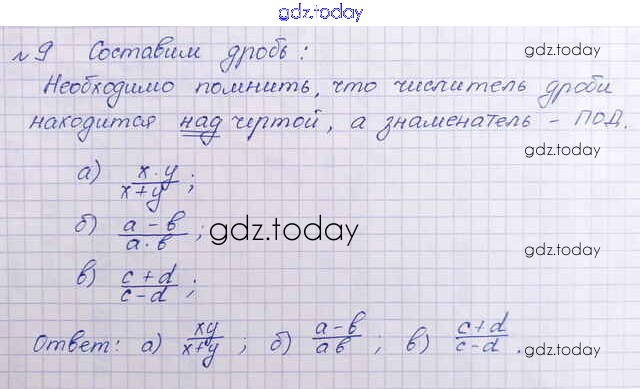 gdz.today
№9 Составим дробь:
gdz.today
Необходимо помнить, что числитель дроби
gdz.today
находится над чертой, а знаменатель - ПОД.
gdz.today
а) x·y / x+y ;
gdz.today
б) a-b / a·b ;
gdz.today
gdz.today
в) c+d / c-d ;
Ответ: а) xy / x+y ; б) a-b / ab ; в) c+d / c-d .
gdz.today